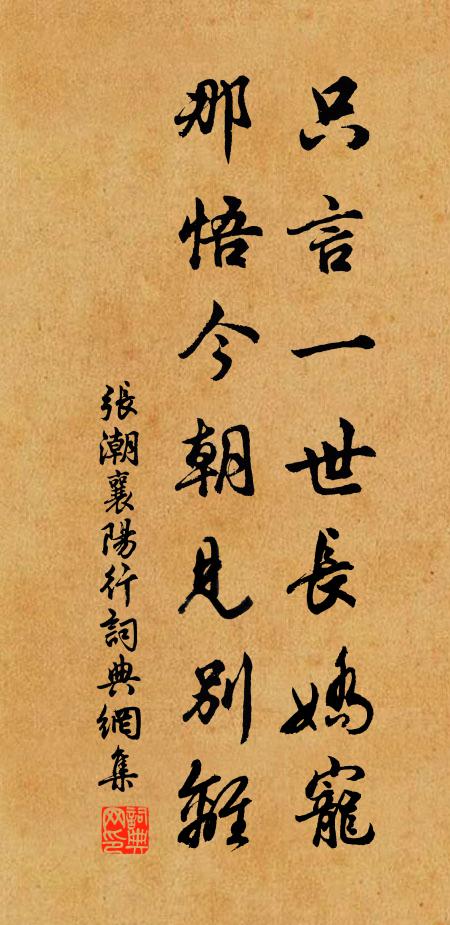 只言一世長嬌寵
那悟今朝見別離
張潮襄陽行詞典網集
詞典网印